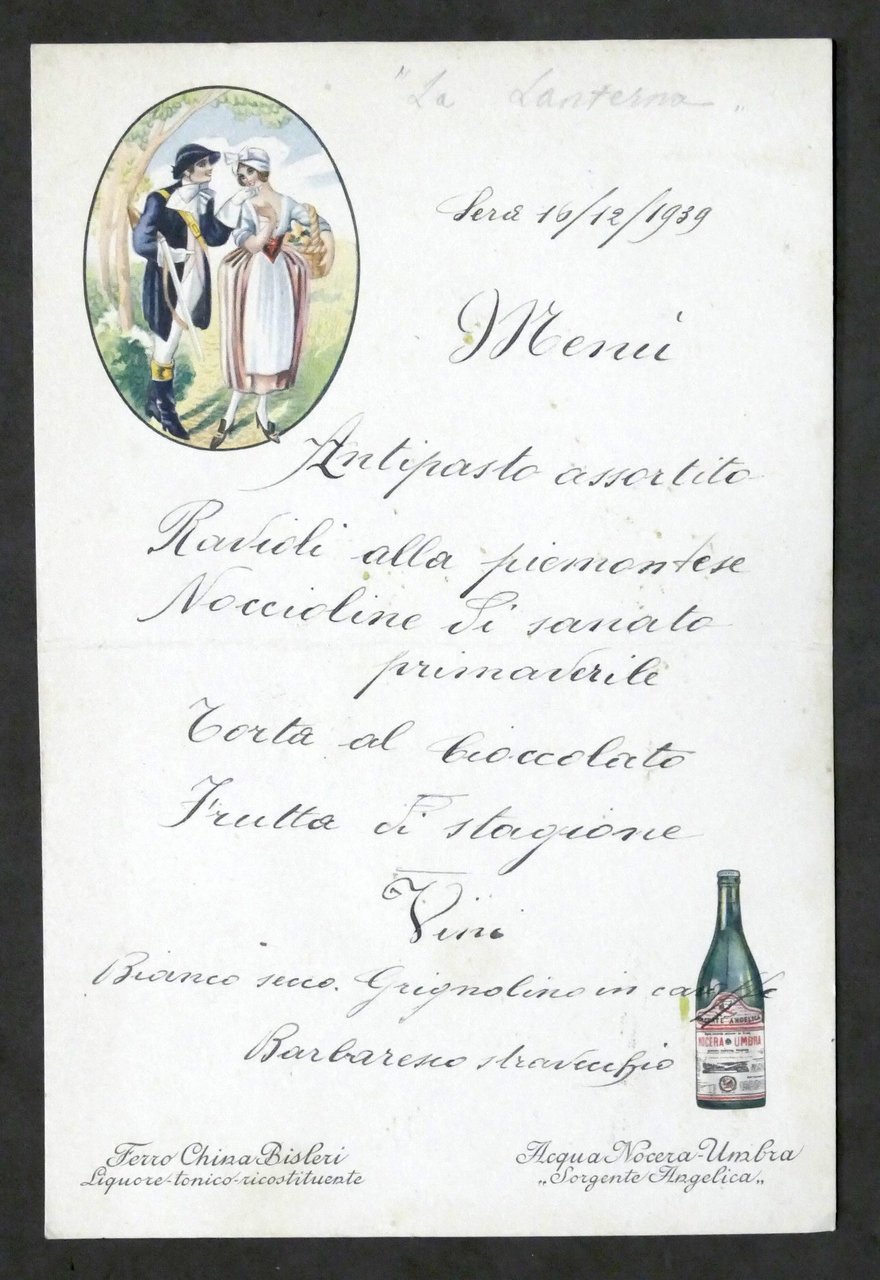 "La Lanterna"
Sera 16/12/1939
Menù
Antipasto assortito
Ravioli alla piemontese
Noccioline di sanato
primaverile
Torta al Cioccolato
Frutta di stagione
Vini
Bianco secco. Grignolino in caraffe
Barbaresco stravecchio
SORGENTE ANGELICA
NOCERA-UMBRA
Ferro China Bisleri
Liquore-tonico-ricostituente
Acqua Nocera-Umbra
„Sorgente Angelica„